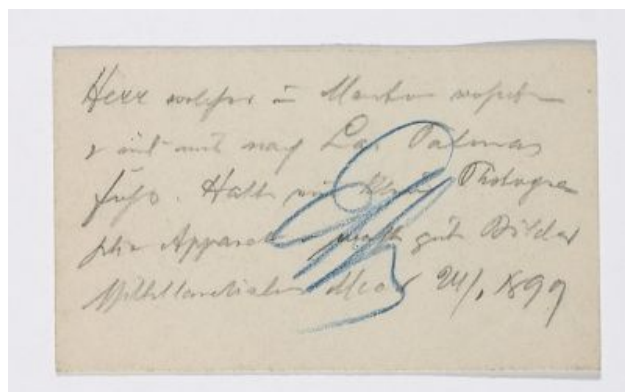 Herr welcher in Mentone wohnte
u mit mir nach Las Palmas
fuhr. Hatte ein klein Photogra
phie Apparat u macht gute Bilder
Mittelländisches Meer 24/1 1899